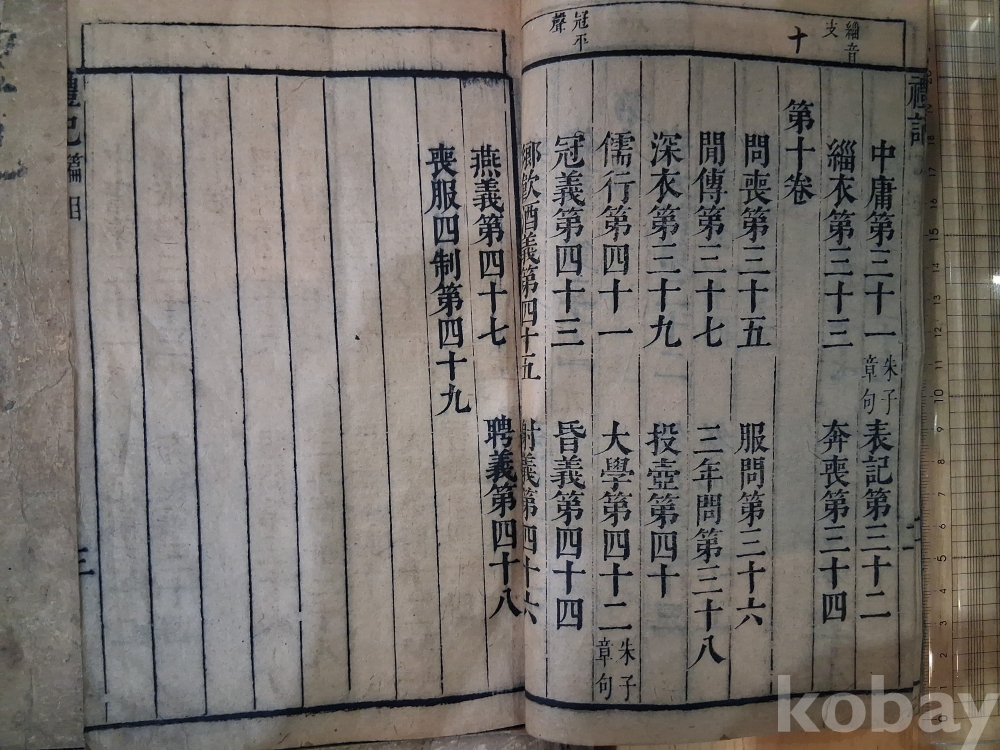 緇音
支
十
冠平
聲
禮記
中庸第三十一 朱子章句 表記第三十二
緇衣第三十三 奔喪第三十四
第十卷
問喪第三十五 服問第三十六
閒傳第三十七 三年問第三十八
深衣第三十九 投壺第四十
儒行第四十一 大學第四十二 朱子章句
冠義第四十三 昏義第四十四
鄉飲酒義第四十五 射義第四十六
燕義第四十七 聘義第四十八
喪服四制第四十九
禮記篇目
三
kobay